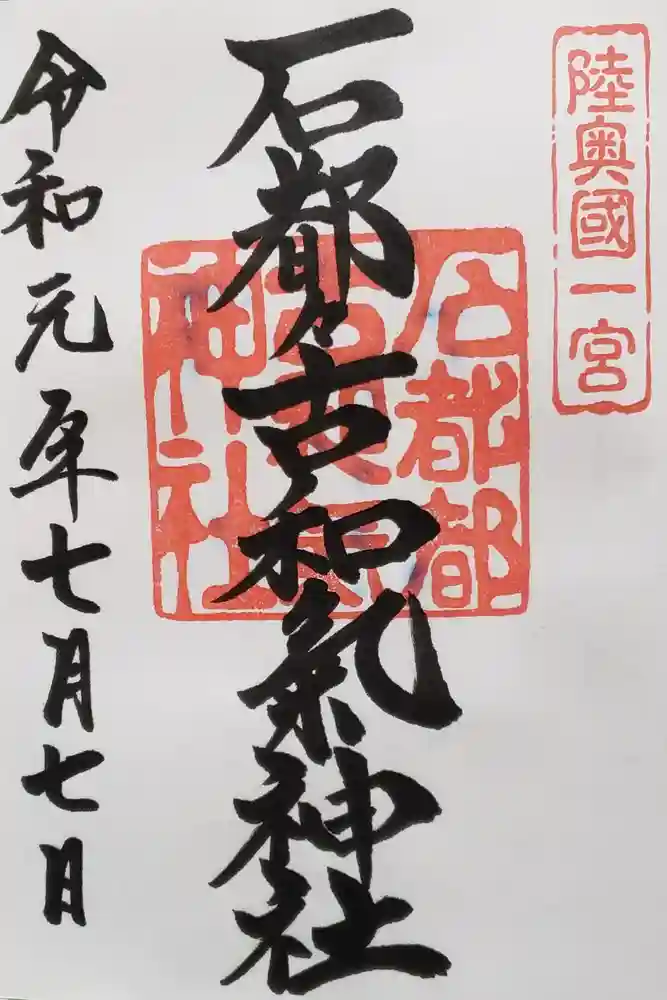 陸奥國一宮
石都々古和氣神社
石都都
古和氣
神社
令和元年七月七日